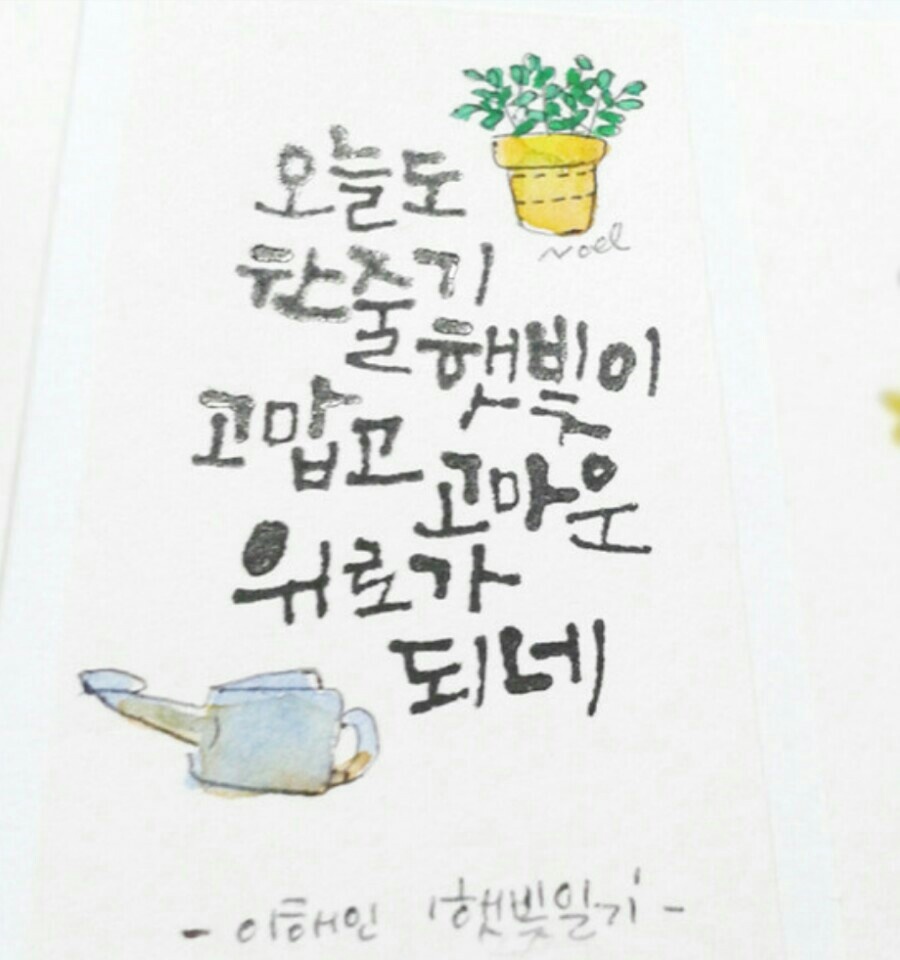 오늘도
Noel
한줄기
햇빛이
고맙고
고마운
위로가
되네
- 이해인 '햇빛일기' -